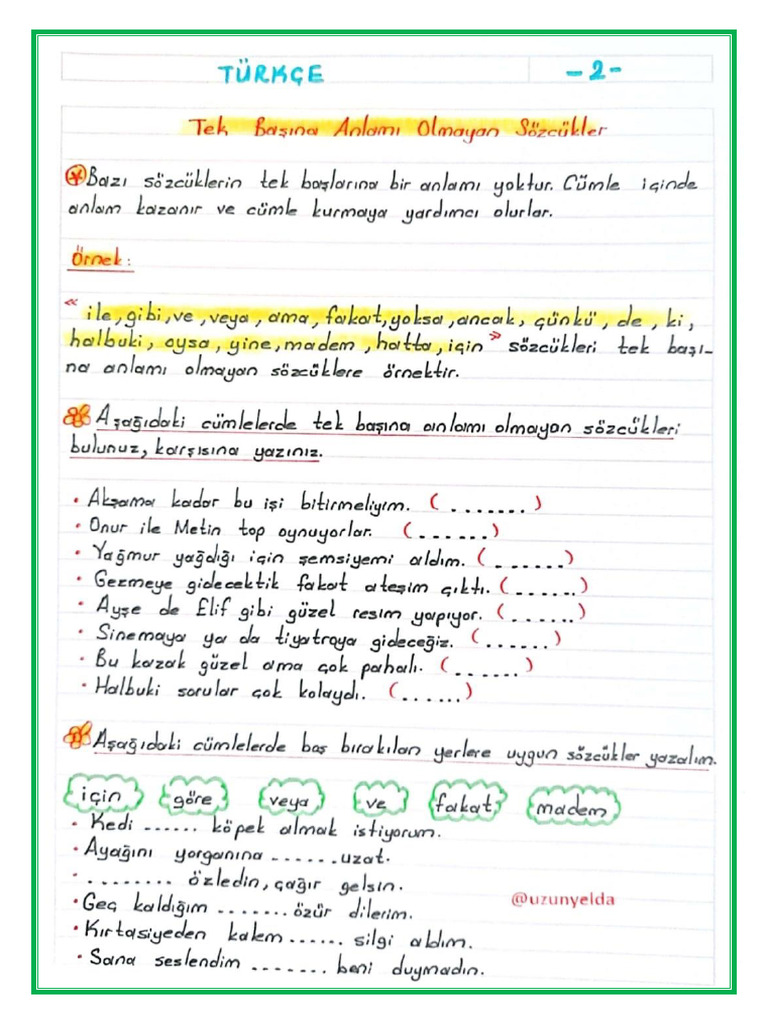 TÜRKÇE -2-
Tek Başına Anlamı Olmayan Sözcükler
Bazı sözcüklerin tek başlarına bir anlamı yoktur. Cümle içinde
anlam kazanır ve cümle kurmaya yardımcı olurlar.
Örnek:
"ile, gibi, ve, veya, ama, fakat, yoksa, ancak, çünkü, de, ki,
halbuki, oysa, yine, madem, hatta, için" sözcükleri tek başı-
na anlamı olmayan sözcüklere örnektir.
Aşağıdaki cümlelerde tek başına anlamı olmayan sözcükleri
bulunuz, karşısına yazınız.
• Akşama kadar bu işi bitirmeliyim. (.......)
• Onur ile Metin top oynuyorlar. (......)
• Yağmur yağdığı için şemsiyemi aldım. (.......)
• Gezmeye gidecektik fakat ateşim çıktı. (......)
• Ayşe de Elif gibi güzel resim yapıyor. (......)
• Sinemaya ya da tiyatroya gideceğiz. (......)
• Bu kazak güzel ama çok pahalı. (.......)
• Halbuki sorular çok kolaydı. (......)
Aşağıdaki cümlelerde boş bırakılan yerlere uygun sözcükler yazalım.
için göre veya ve fakat madem
• Kedi ...... köpek almak istiyorum.
• Ayağını yorganına .......uzat.
• ........ özledin, çağır gelsin.
• Geç kaldığım .......özür dilerim.
@uzunyelda
• Kırtasiyeden kalem ...... silgi aldım.
• Sana seslendim ....... beni duymadın.